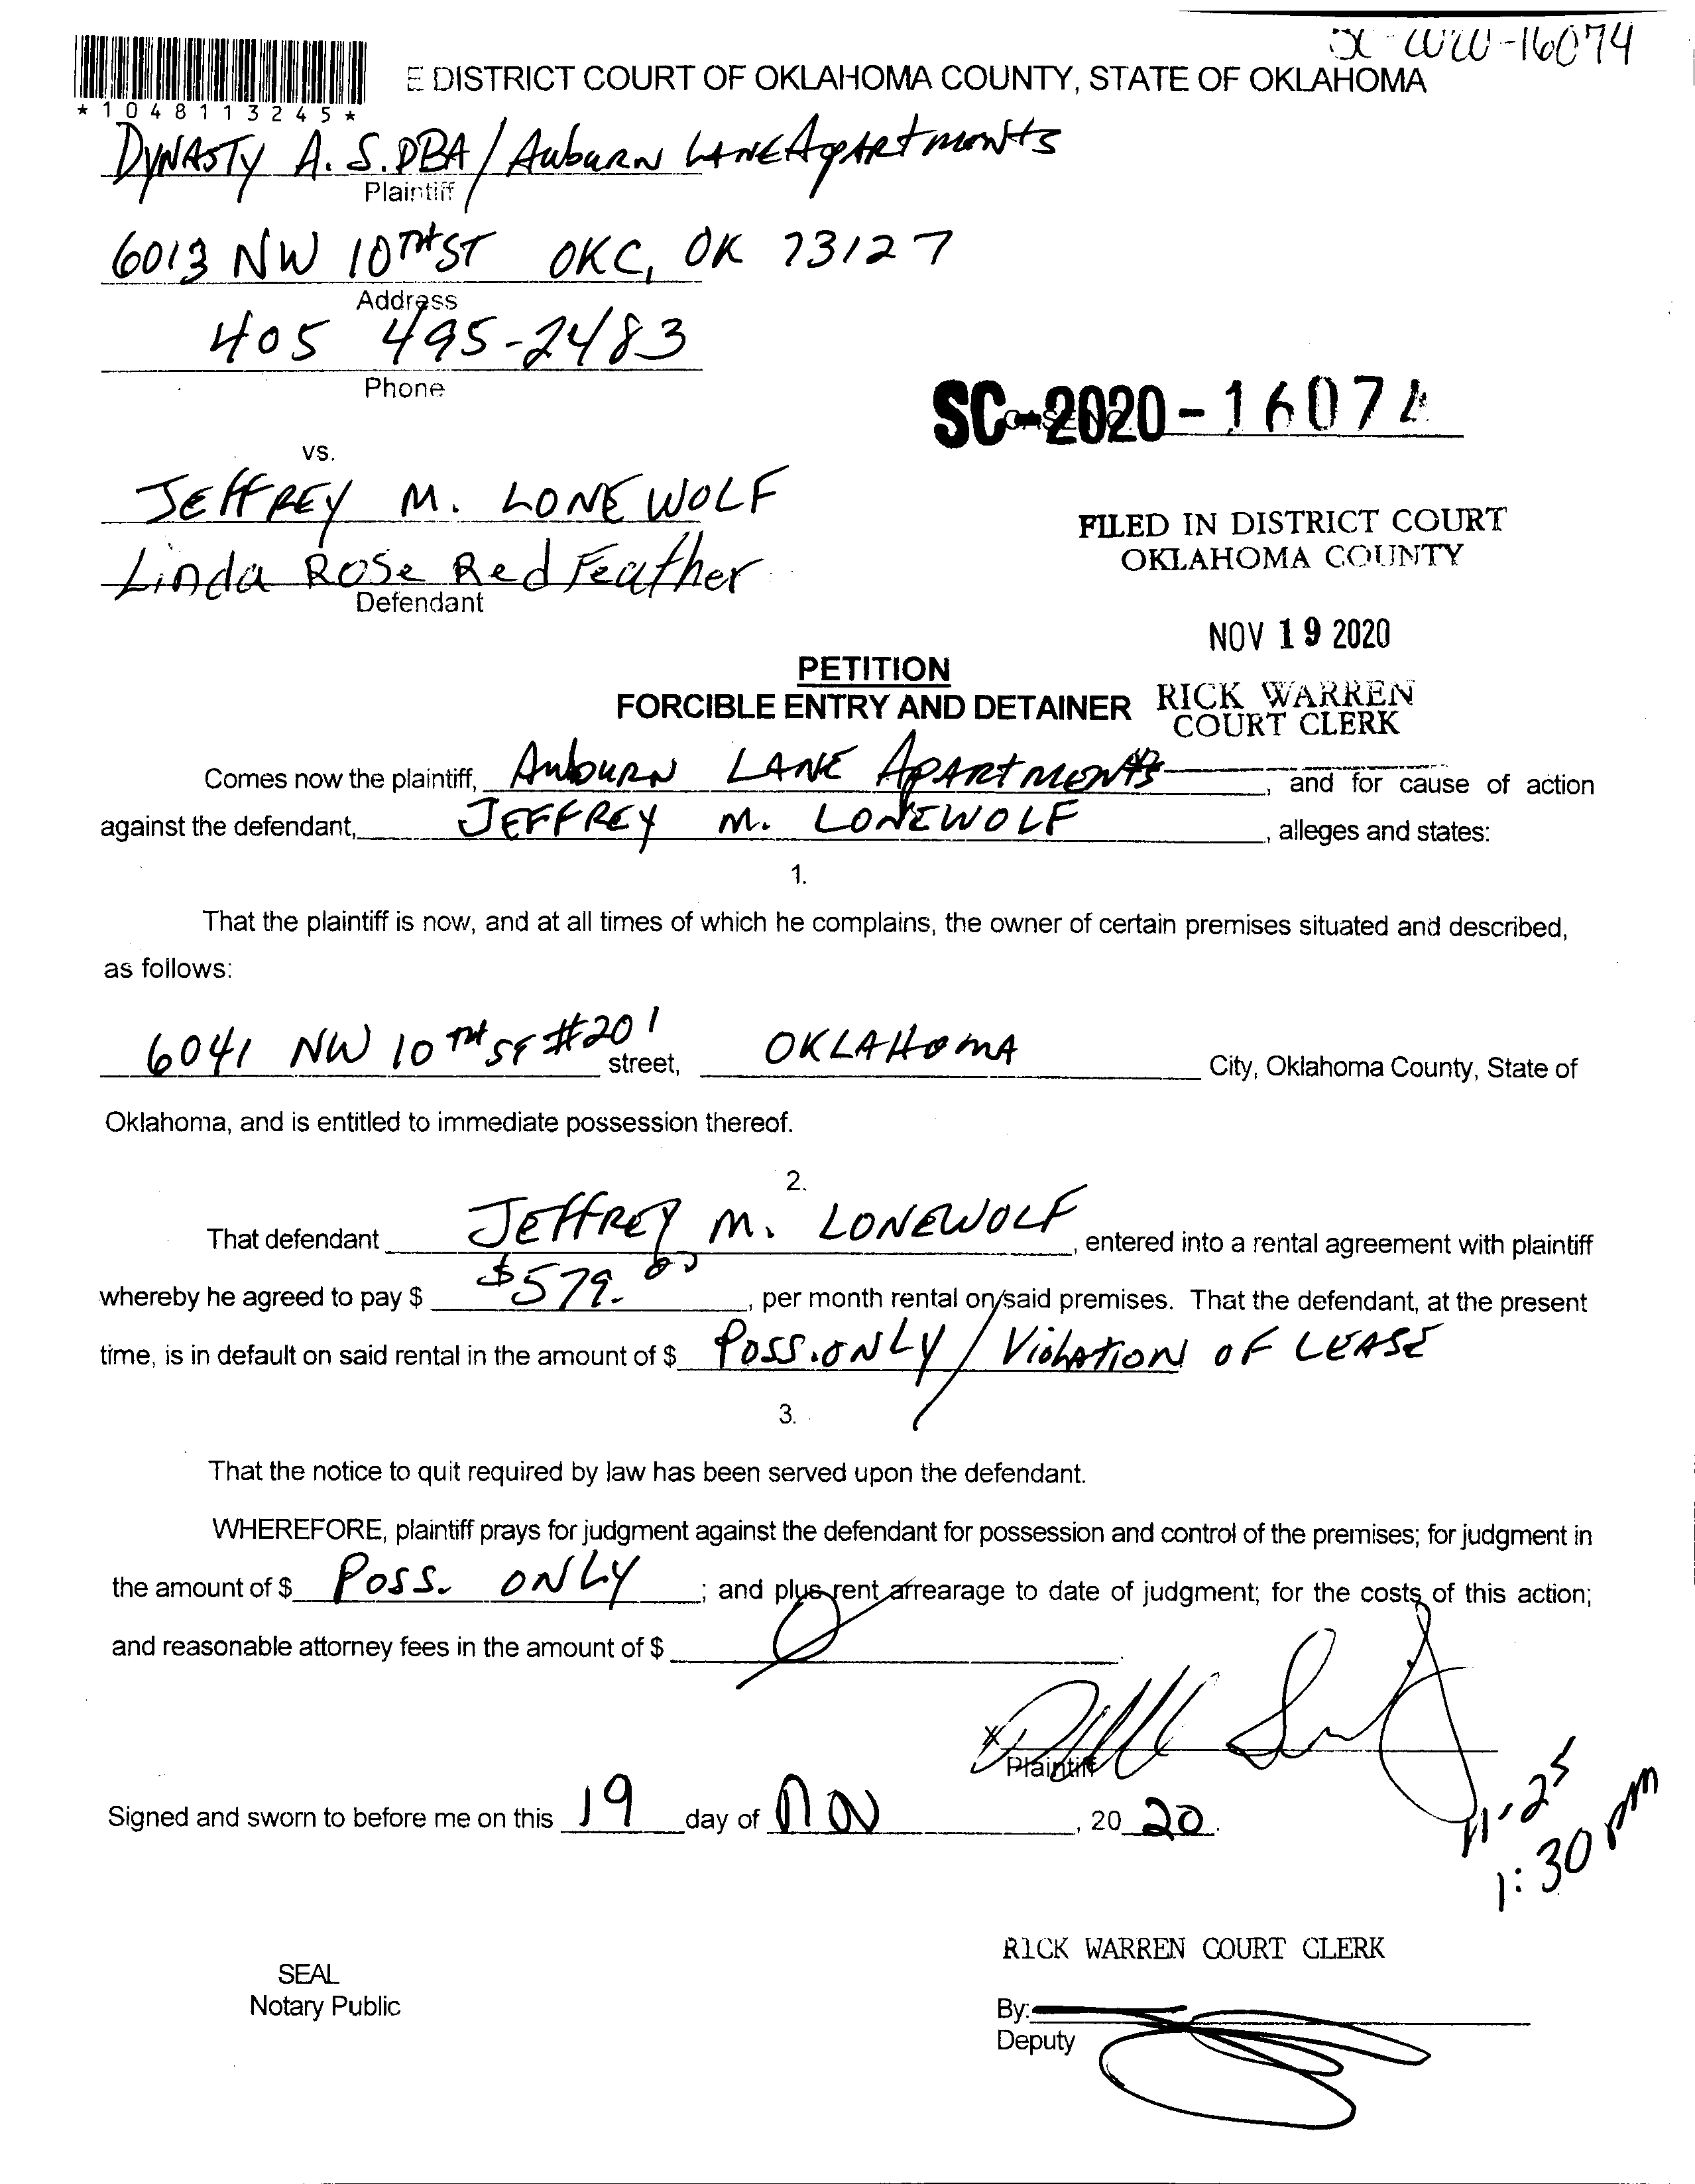 -16074
E DISTRICT COURT OF OKLAHOMA COUNTY, STATE OF OKLAHOMA
*1048113245*
DYNASTY A. S. DBA / AuburN LANE ApARtmeNts
Plaintiff
6013 NW 10TH ST OKC, OK 73127
Address
405 495-2483
Phone
SC-2020-16074
vs.
JEFFREY M. LONEWOLF
Linda Rose Red Feather
Defendant
FILED IN DISTRICT COURT
OKLAHOMA COUNTY
NOV 19 2020
PETITION
FORCIBLE ENTRY AND DETAINER
RICK WARREN
COURT CLERK
Comes now the plaintiff, AuburN LANE ApARtMENts, and for cause of action
against the defendant, JEFFREY M. LONEWOLF, alleges and states:
1.
That the plaintiff is now, and at all times of which he complains, the owner of certain premises situated and described,
as follows:
6041 NW 10TH ST #201 street, OKLAHOMA City, Oklahoma County, State of
Oklahoma, and is entitled to immediate possession thereof.
2.
That defendant JEFFREY M. LONEWOLF, entered into a rental agreement with plaintiff
whereby he agreed to pay $ $579.00, per month rental on said premises. That the defendant, at the present
time, is in default on said rental in the amount of $ Poss. ONLY / ViolAtioN OF LEASE
3.
That the notice to quit required by law has been served upon the defendant.
WHEREFORE, plaintiff prays for judgment against the defendant for possession and control of the premises; for judgment in
the amount of $ Poss. ONLY; and plus rent arrearage to date of judgment; for the costs of this action;
and reasonable attorney fees in the amount of $
X
Plaintiff
Signed and sworn to before me on this 19 day of NOV, 20 20.
11-25
1:30 pm
RICK WARREN COURT CLERK
SEAL
Notary Public
By:
Deputy